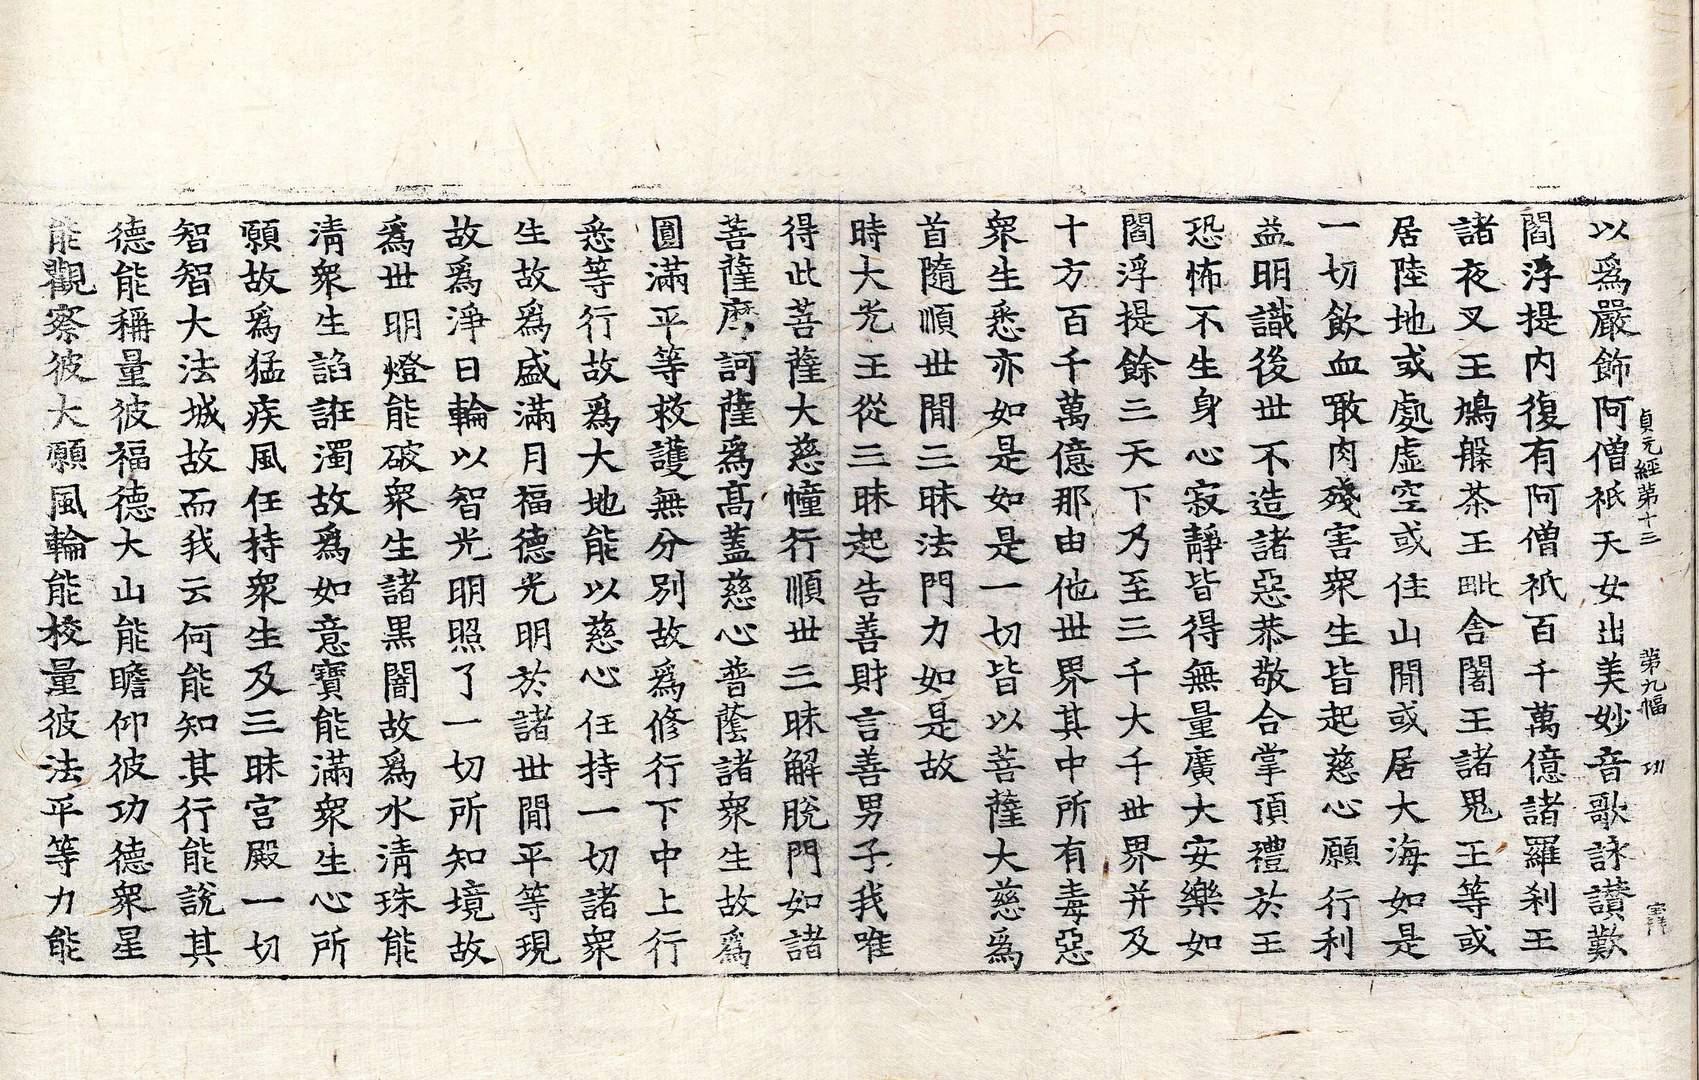 貞元經第十三 第九幅 功
以爲嚴飾阿僧祇天女出美妙音歌詠讃歎
閻浮提內復有阿僧祇百千萬億諸羅刹王
諸夜叉王鳩槃茶王毗舍闍王諸鬼王等或
居陸地或處虛空或住山閒或居大海如是
一切飮血噉肉殘害衆生皆起慈心願行利
益明識後世不造諸惡恭敬合掌頂禮於王
恐怖不生身心寂靜皆得無量廣大安樂如
閻浮提餘三天下乃至三千大千世界并及
十方百千萬億那由他世界其中所有毒惡
衆生悉亦如是如是一切皆以菩薩大慈爲
首隨順世閒三昧法門力如是故
時大光王從三昧起告善財言善男子我唯
得此菩薩大慈幢行順世三昧解脫門如諸
菩薩摩訶薩爲高蓋慈心普蔭諸衆生故爲
圓滿平等救護無分別故爲修行下中上行
悉等行故爲大地能以慈心任持一切諸衆
生故爲盛滿月福德光明於諸世閒平等現
故爲淨日輪以智光明照了一切所知境故
爲世明燈能破衆生諸黑闇故爲水淸珠能
淸衆生諂誑濁故爲如意寶能滿衆生心所
願故爲猛疾風任持衆生及三昧宮殿一切
智智大法城故而我云何能知其行能說其
德能稱量彼福德大山能瞻仰彼功德衆星
能觀察彼大願風輪能校量彼法平等力能